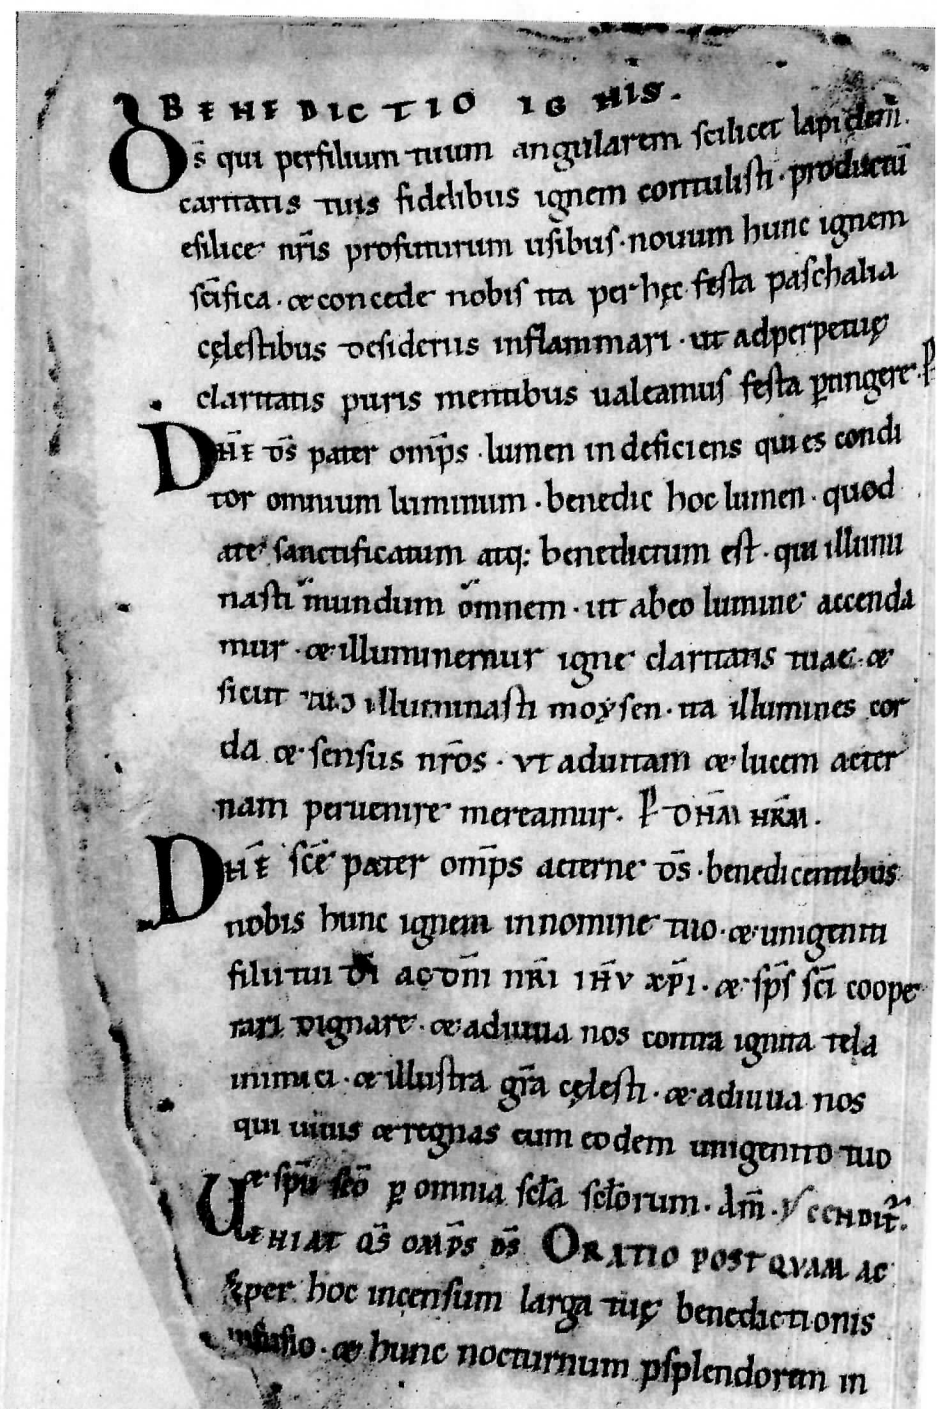 BENEDICTIO IGNIS.
Ds̄ qui perfilium tuum angularem scilicet lapidem̄.
caritatis tuis fidelibus ignem contulisti · productū
esilice nr̄is profuturum usibus · nouum hunc ignem
sc̄ifica · & concede nobis ita per hęc festa paschalia
cęlestibus desideriis inflammari · ut adperpetuę
claritatis puris mentibus ualeamus festa ꝑtingere · P̄
Dn̄e ds̄ pater omp̄s · lumen indeficiens qui es condi
tor omnium luminum · benedic hoc lumen · quod
ate sanctificatum atq: benedictum est · qui illumi
nasti mundum omnem · ut abeo lumine accenda
mur · & illuminemur igne claritatis tuae · &
sicut illuminasti moẏsen · ita illumines cor
da & sensus nr̄os · ut aduitam & lucem aeter
nam peruenire mereamur. P̄ DN̄M NR̄M.
Dn̄e sc̄e pater omp̄s aeterne ds̄ · benedicentibus
nobis hunc ignem innomine tuo · & unigeniti
filii tui dī ac dn̄i nr̄i ihv̄ xp̄i · & sp̄s sc̄i coope
rari dignare · & adiuua nos contra ignita tela
inimici · & illustra gr̄a cęlesti · & adiuua nos
qui uiuis & regnas cum eodem unigenito tuo
& sp̄u sc̄o ꝑ omnia scl̄a scl̄orum · Am̄ · CENDIT̄.
VENIAT QS̄ OMP̄S DS̄ ORATIO POSTQVAM AC
per hoc incensum larga tuę benedictionis
infusio · & hunc nocturnum psplendorem in